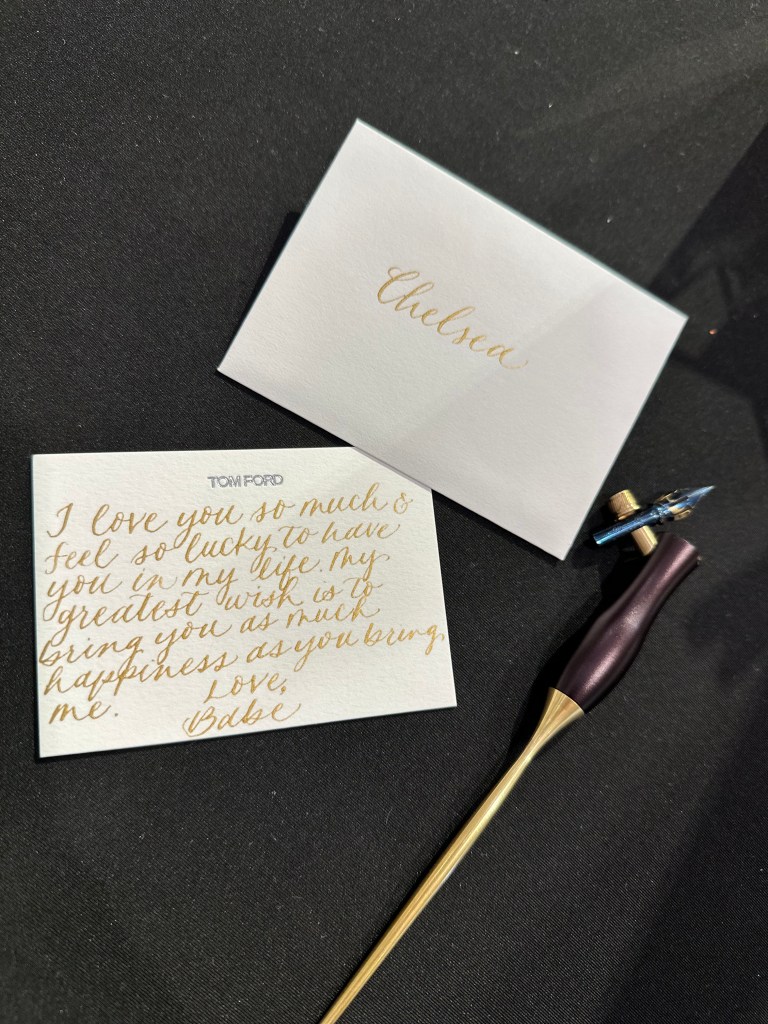 Chelsea
TOM FORD
I love you so much &
feel so lucky to have
you in my life. My
greatest wish is to
bring you as much
happiness as you bring
me.
Love,
Babe